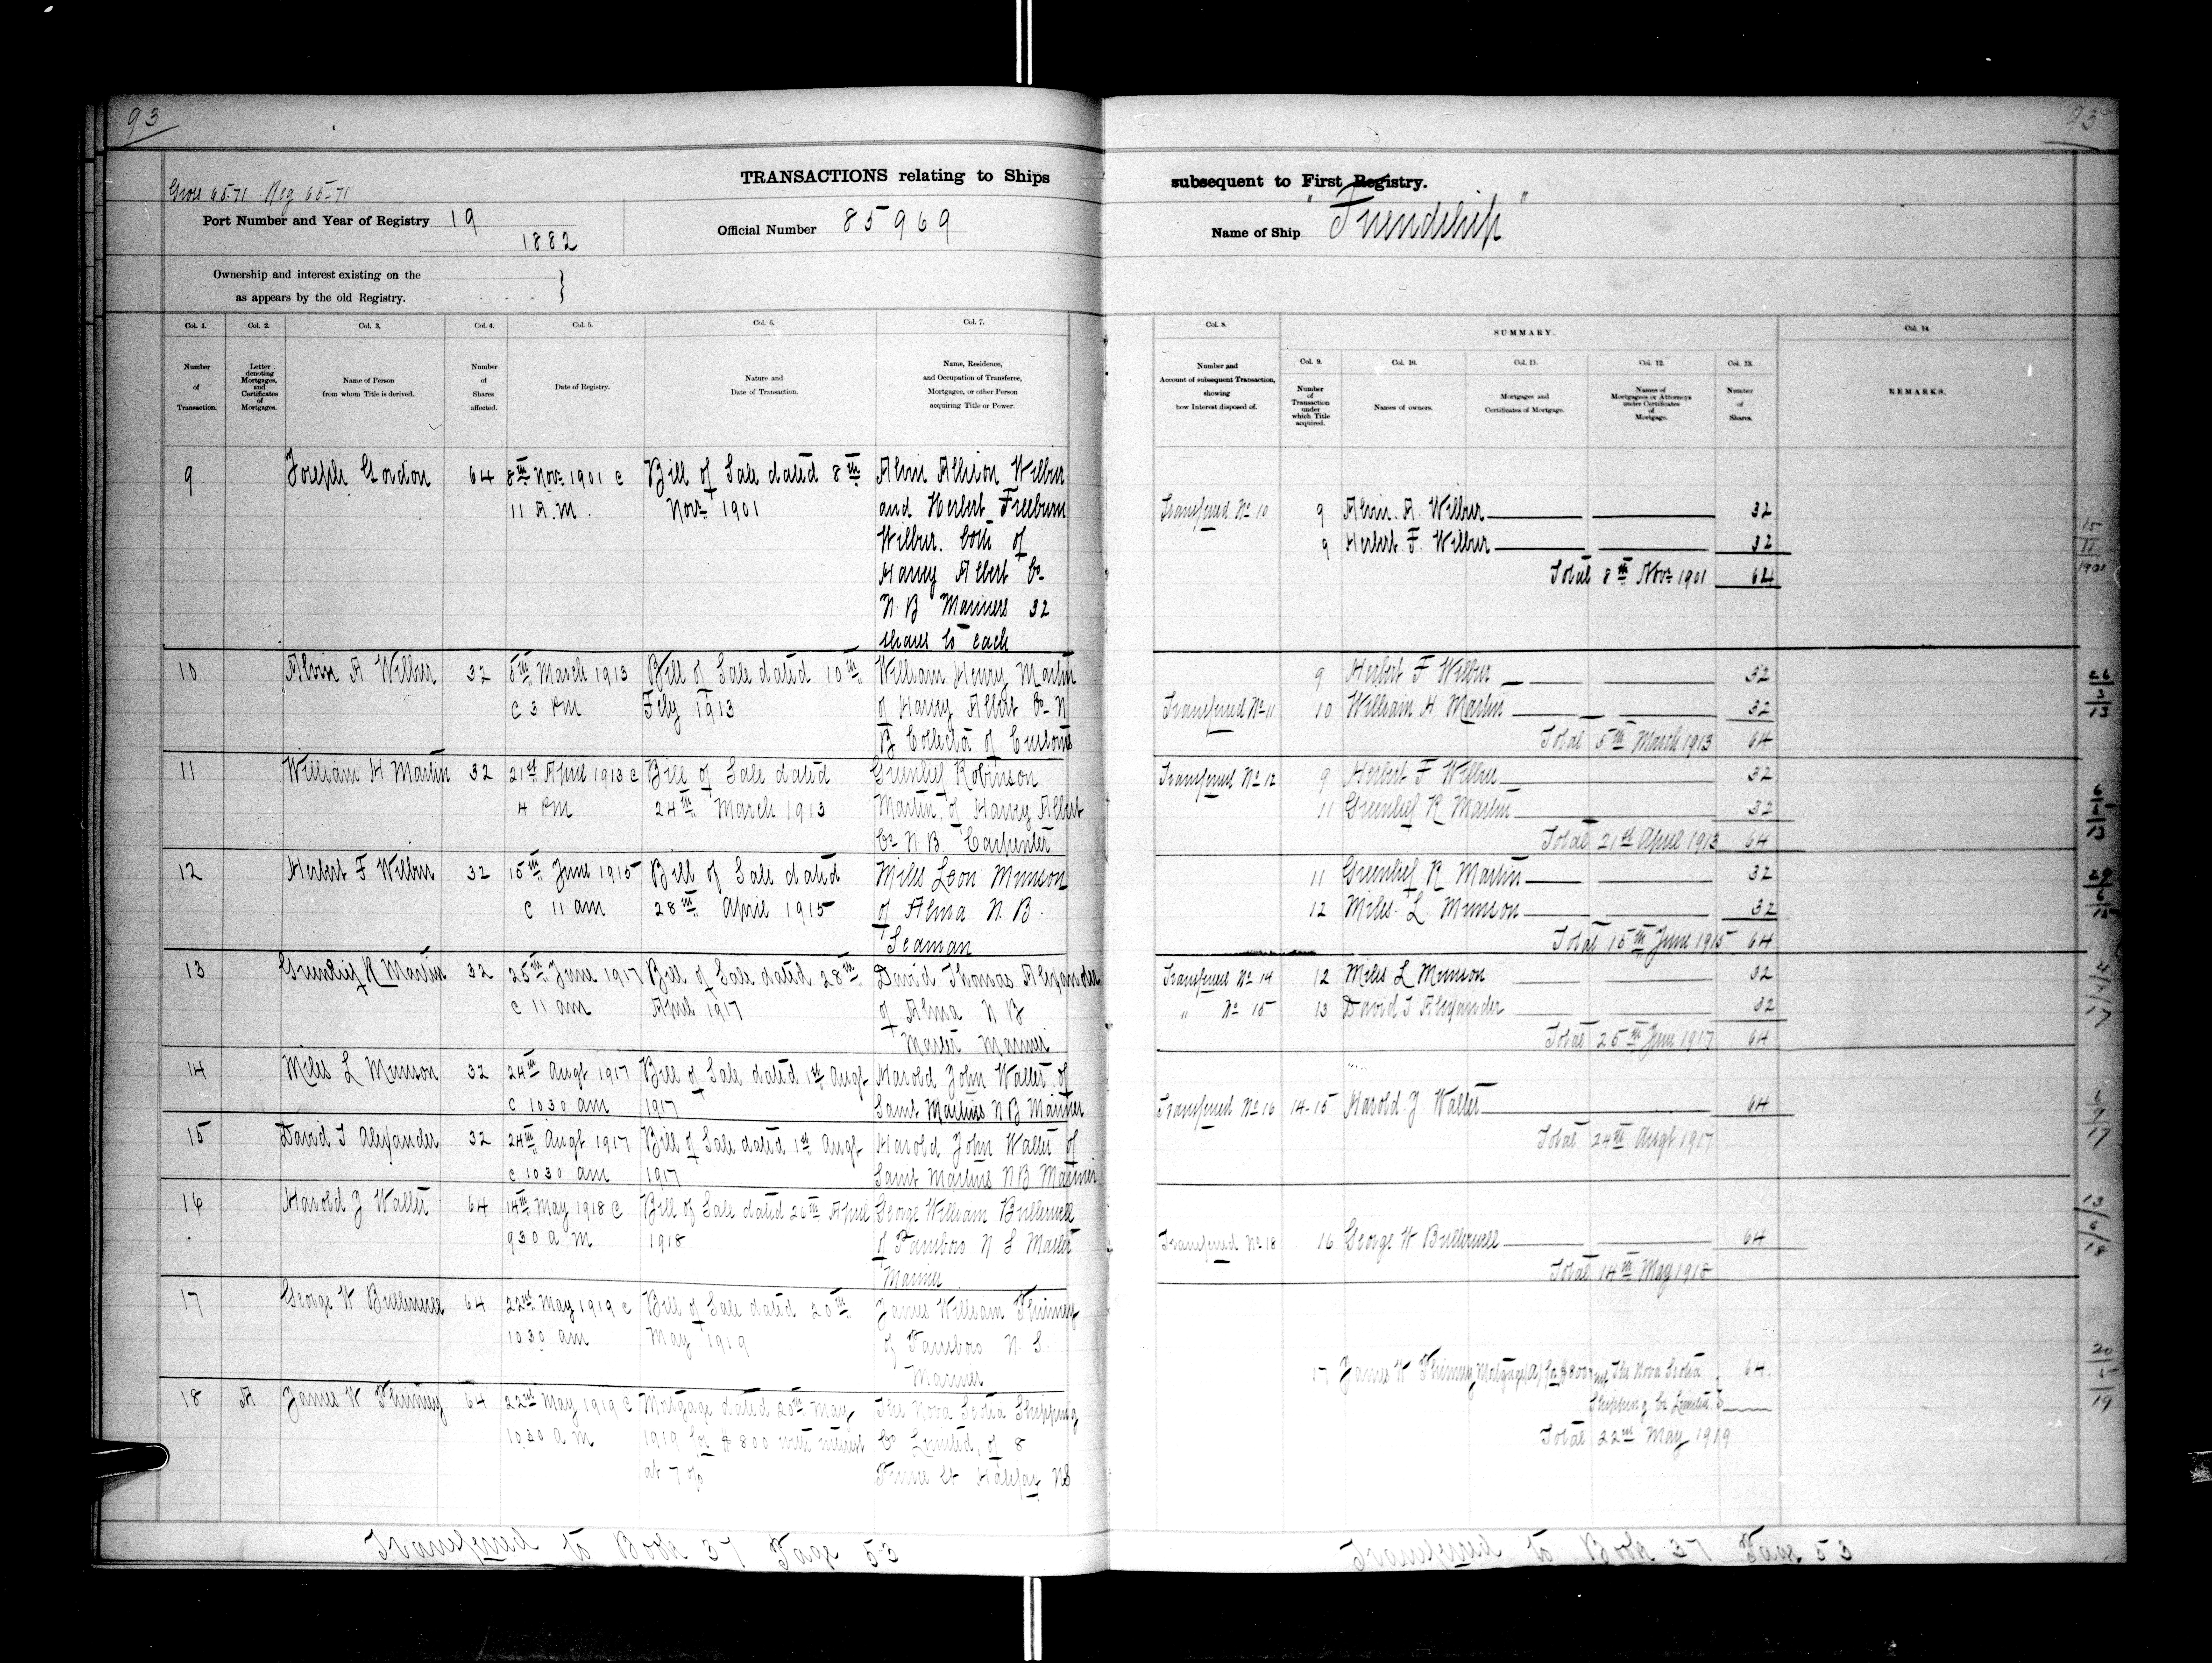 93
93
TRANSACTIONS relating to Ships
subsequent to First Registry.
Gross 65.71 Reg 65.71
Port Number and Year of Registry 19
1882
Official Number 85969
Name of Ship "Friendship"
Ownership and interest existing on the
as appears by the old Registry. }
Col. 1. Col. 2. Col. 3. Col. 4. Col. 5. Col. 6. Col. 7.
Number of Transaction.
Letter denoting Mortgages, and Certificates of Mortgages.
Name of Person from whom Title is derived.
Number of Shares affected.
Date of Registry.
Nature and Date of Transaction.
Name, Residence, and Occupation of Transferee, Mortgagee, or other Person acquiring Title or Power.
Col. 8.
Number and Account of subsequent Transaction, showing how Interest disposed of.
SUMMARY.
Col. 9. Col. 10. Col. 11. Col. 12. Col. 13.
Number of Transaction under which Title acquired.
Names of owners.
Mortgages and Certificates of Mortgage.
Names of Mortgagees or Attorneys under Certificates of Mortgage.
Number of Shares.
Col. 14.
REMARKS.
9 Joseph Gordon 64 8th Novr 1901 c Bill of Sale dated 8th Alvin Allison Wilbur
11 A.M. Novr 1901 and Herbert Freebum
Wilbur. both of
Harvy Albert Co
N.B Mariners 32
shares to each
10 Alvin A Wilbur 32 5th March 1913 Bill of Sale dated 10th William Henry Martin
c 3 PM Feby 1913 of Harvy Albert Co N
B Collector of Customs
11 William H Martin 32 21st April 1913 c Bill of Sale dated Greenlief Robinson
4 PM 24th March 1913 Martin, of Harvy Albert
Co N.B. Carpenter
12 Herbert F Wilbur 32 15th June 1915 Bill of Sale dated Miles Leon Munson
c 11 am 28th April 1915 of Alma N.B.
Seaman
13 Greenlief R Martin 32 25th June 1917 Bill of Sale dated 28th David Thomas Alexander
c 11 am April 1917 of Alma N B
Master Mariner
14 Miles L Munson 32 24th Augt 1917 Bill of Sale dated 1st Augt Harold John Walter of
c 10 30 am 1917 Saint Martins N B Mariner
15 David T Alexander 32 24th Augt 1917 Bill of Sale dated 1st Augt Harold John Walter of
c 10 30 am 1917 Saint Martins N B Mariner
16 Harold J Walter 64 14th May 1918 c Bill of Sale dated 20th April George William Bullerwell
9 30 a m 1918 of Parrsboro N S Master
Mariner
17 George W Bullerwell 64 22nd May 1919 c Bill of Sale dated 20th James William Phinney
10 30 am May 1919 of Parrsboro N.S.
Mariner
18 A James W Phinney 64 22nd May 1919 c Mortgage dated 20th May The Nova Scotia Shipping
10.30 a m 1919 for $800 with interest Co Limited, of 8
at 7 % Prince St Halifax NS
Transfered No 10 9 Alvin. A. Wilbur 32
9 Herbert. F. Wilbur 32
Total 8th Novr 1901 64
9 Herbert F Wilbur 32
Transfered No 11 10 William H Martin 32
Total 5th March 1913 64
Transfered No 12 9 Herbert F Wilbur 32
11 Greenlief R Martin 32
Total 21st April 1913 64
11 Greenlief R Martin 32
12 Miles. L. Munson 32
Total 15th June 1915 64
Transfered No 14 12 Miles L Munson 32
" No 15 13 David T Alexander 32
Total 25th June 1917 64
Transfered No 16 14-15 Harold J Walter 64
Total 24th Augt 1917
Transfered No 18 16 George W Bullerwell 64
Total 14th May 1918
17 James W Phinney Mortgage (A) for $800 The Nova Scotia 64.
Shipping Co Limited
Total 22nd May 1919
15/11/1901
26/3/13
6/7/17
Transfered to Book 37 Page 53
Transfered to Book 37 Page 53